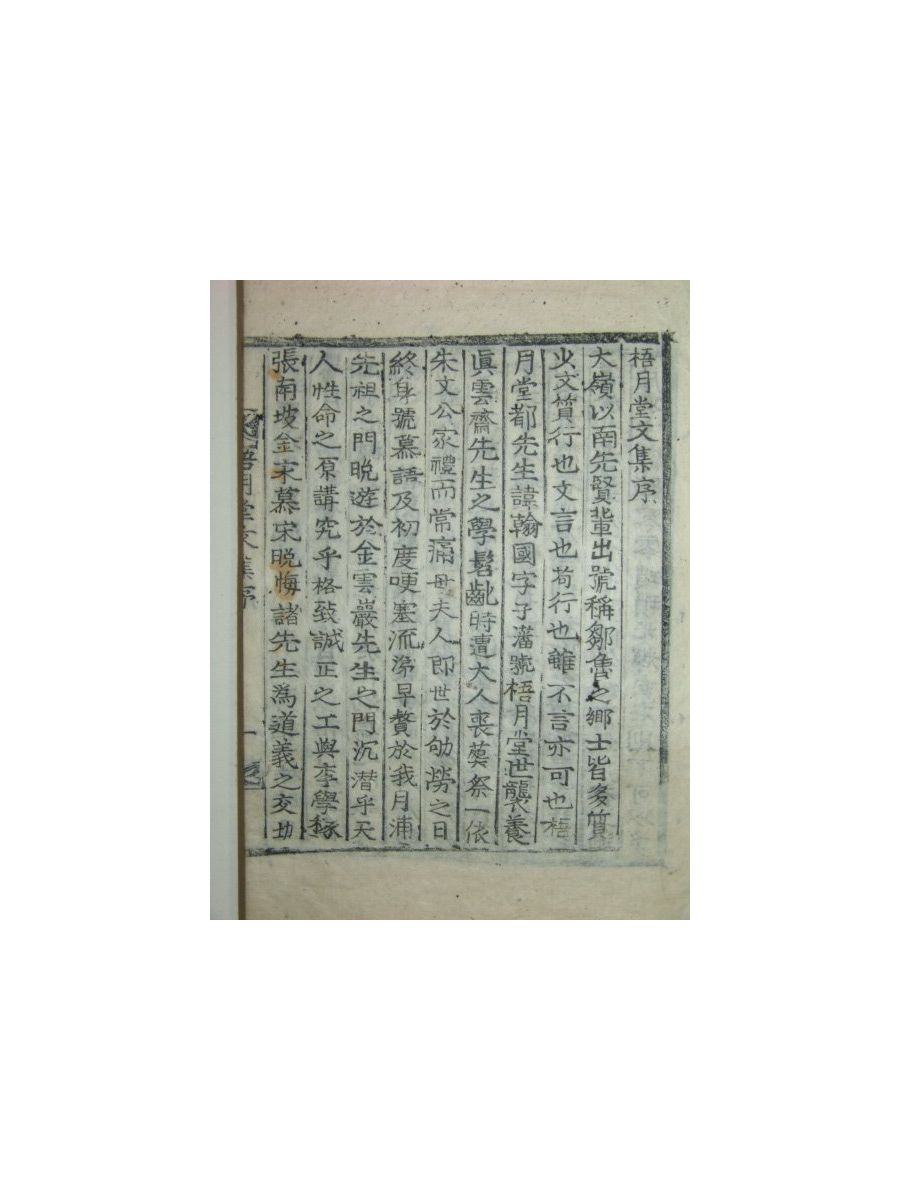 梧月堂文集序
大嶺以南先賢輩出號稱鄒魯之鄉士皆多質
少文質行也文言也苟行也雖不言亦可也梧
月堂都先生諱翰國字子藩號梧月堂世襲養
眞雲齋先生之學髫齔時遭大人喪奠祭一依
朱文公家禮而常痛母夫人卽世於劬勞之日
終身號慕語及初度哽塞流涕早贅於我月浦
先祖之門晩遊於金雲巖先生之門沉潛乎天
人性命之原講究乎格致誠正之工與李學稼
張南坡金宋慕宋晩悔諸先生爲道義之交劫
梧月堂文集序 一